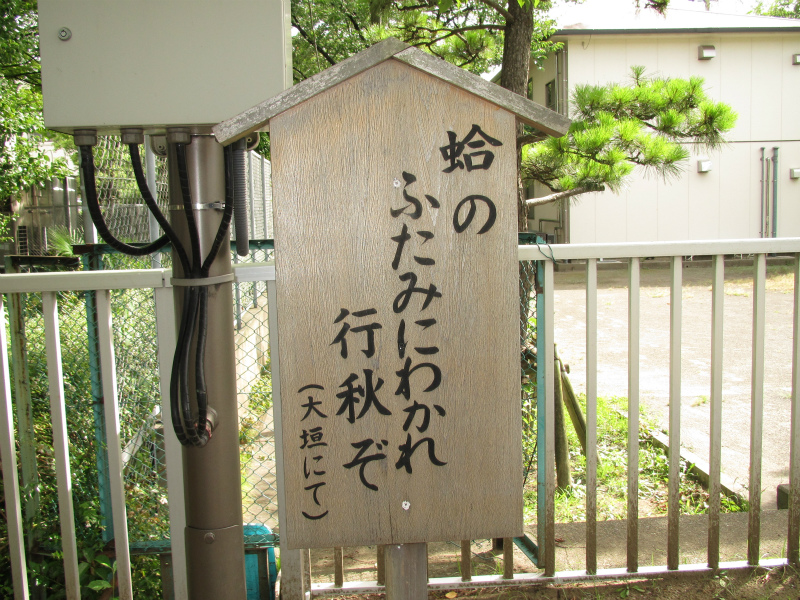 蛤の
ふたみにわかれ
行秋ぞ
(大垣にて)